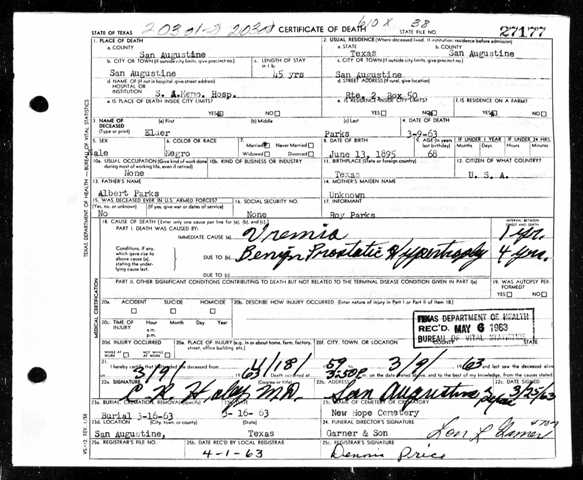 STATE OF TEXAS CERTIFICATE OF DEATH STATE FILE NO. 27177
610 X 38
1. PLACE OF DEATH 2. USUAL RESIDENCE (Where deceased lived. If institution: residence before admission)
a. COUNTY San Augustine a. STATE Texas b. COUNTY San Augustine
b. CITY OR TOWN (If outside city limits, give precinct no.) San Augustine c. LENGTH OF STAY in 1 b. 45 yrs c. CITY OR TOWN (If outside city limits, give precinct no.) San Augustine
d. NAME OF (If not in hospital, give street address) HOSPITAL OR INSTITUTION S. A. Memo. Hosp. d. STREET ADDRESS (If rural, give location) Rte. 2, Box 50
e. IS PLACE OF DEATH INSIDE CITY LIMITS? YES NO e. IS RESIDENCE INSIDE CITY LIMITS? YES NO f. IS RESIDENCE ON A FARM? YES NO
3. NAME OF DECEASED (Type or print) (a) First Elmer (b) Middle (c) Last Parks 4. DATE OF DEATH 3-9-63
5. SEX ale 6. COLOR OR RACE Negro 7. Married Never Married Widowed Divorced 8. DATE OF BIRTH June 13, 1895 9. AGE (In years last birthday) 68 IF UNDER 1 YEAR Months Days IF UNDER 24 HRS. Hours Min.
10a. USUAL OCCUPATION (Give kind of work done during most of working life, even if retired) None 10b. KIND OF BUSINESS OR INDUSTRY 11. BIRTHPLACE (State or foreign country) Texas 12. CITIZEN OF WHAT COUNTRY? U. S. A.
13. FATHER'S NAME Albert Parks 14. MOTHER'S MAIDEN NAME Unknown
15. WAS DECEASED EVER IN U.S. ARMED FORCES? (Yes, no, or unknown) (If yes, give war or dates of service) No 16. SOCIAL SECURITY NO. None 17. INFORMANT Roy Parks
18. CAUSE OF DEATH (Enter only one cause per line for (a), (b), and (c).) INTERVAL BETWEEN ONSET AND DEATH
PART I. DEATH WAS CAUSED BY:
IMMEDIATE CAUSE (a) Uremia 1 yr.
Conditions, if any, which gave rise to above cause (a), stating the underlying cause last. DUE TO (b) Benign Prostatic Hypertrophy 4 yrs.
DUE TO (c)
PART II. OTHER SIGNIFICANT CONDITIONS CONTRIBUTING TO DEATH BUT NOT RELATED TO THE TERMINAL DISEASE CONDITION GIVEN IN PART I (a) 19. WAS AUTOPSY PERFORMED? YES NO
20a. ACCIDENT SUICIDE HOMICIDE 20b. DESCRIBE HOW INJURY OCCURRED. (Enter nature of injury in Part I or Part II of item 18.)
20c. TIME OF INJURY Hour Month Day Year a.m. p.m.
TEXAS DEPARTMENT OF HEALTH
REC'D MAY 6 1963
BUREAU OF VITAL STATISTICS
20d. INJURY OCCURRED WHILE AT WORK NOT WHILE AT WORK 20e. PLACE OF INJURY (e.g. in or about home, farm, factory, street, office building, etc.) 20f. CITY, TOWN, OR LOCATION COUNTY STATE
21. I hereby certify that I attended the deceased from 4/18/ 59 3/9/ 1963
3/9/ 1963. Death occurred at 3:50
22a. SIGNATURE Haley M.D. (Degree or title) 22b. ADDRESS San Augustine, Texas 3/25/63
23a. BURIAL, CREMATION, REMOVAL Burial 3-16-63 3-16-63 23c. NAME OF CEMETERY OR CREMATORY New Hope Cemetery
23d. LOCATION (City, town, or county) (State) San Augustine, Texas 24. FUNERAL DIRECTOR'S SIGNATURE Garner & Son
25a. REGISTRAR'S FILE NO. 25b. DATE REC'D BY LOCAL REGISTRAR 4-1-63 25c. REGISTRAR'S SIGNATURE Dennis Price
TEXAS DEPARTMENT OF HEALTH—BUREAU OF VITAL STATISTICS
MEDICAL CERTIFICATION